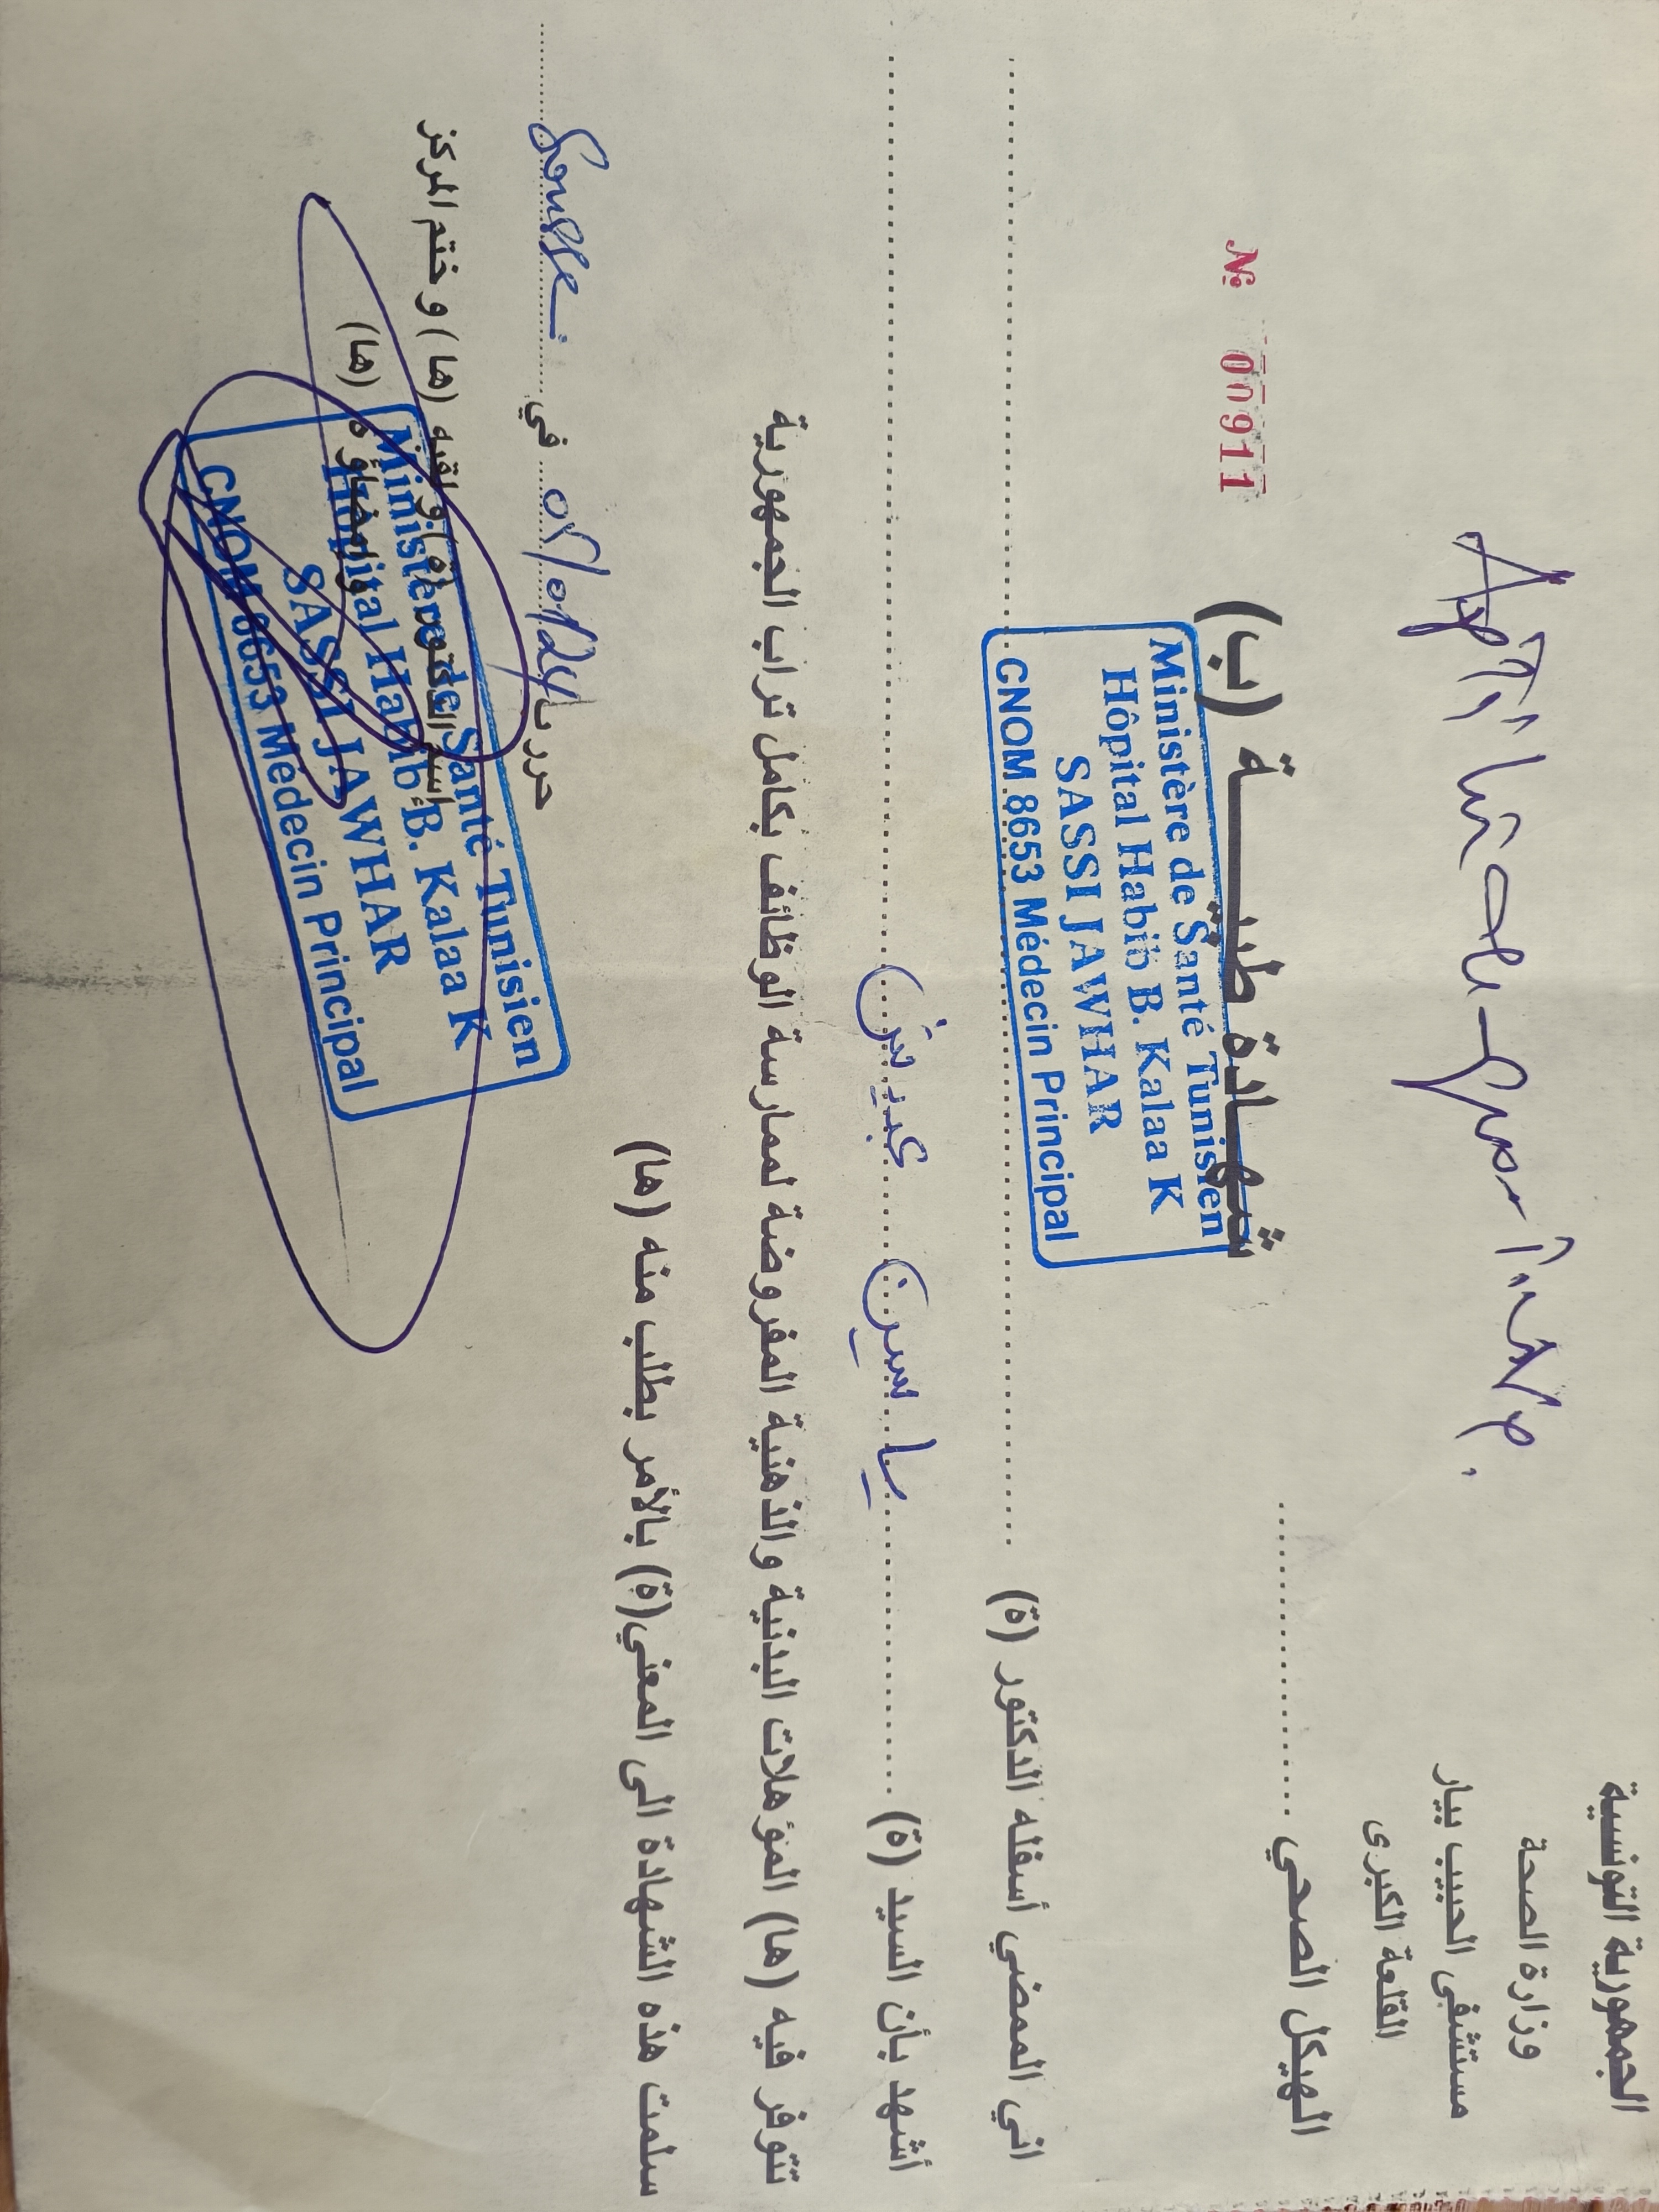 الجمهورية التونسية
وزارة الصحة
مستشفى الحبيب بيار
القلعة الكبرى
الهيكل الصحي ....................
شهادة طبيـــــة (ب)
№ 00911
Ministère de Santé Tunisien
Hôpital Habib B. Kalaa K
SASSI JAWHAR
CNOM 8653 Médecin Principal
اني الممضي أسفله الدكتور (ة) ....................
أشهد بأن السيد (ة) .......... ياسين ..........
تتوفر فيه (ها) المؤهلات البدنية والذهنية المفروضة لممارسة الوظائف بكامل تراب الجمهورية
سلمت هذه الشهادة الى المعني(ة) بالأمر بطلب منه (ها)
حرر ب ... في ... Sousse
اسم الدكتور (ة) و لقبه (ها) و ختم المركز
و إمضاؤه (ها)
Ministère de Santé Tunisien
Hôpital Habib B. Kalaa K
SASSI JAWHAR
CNOM 8653 Médecin Principal